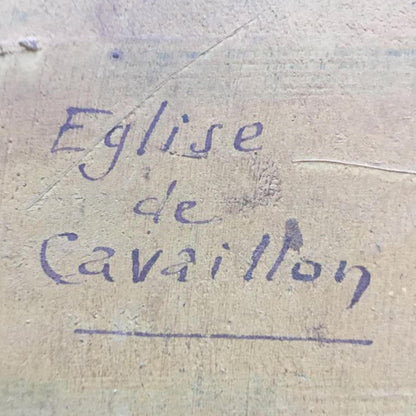 Eglise
de
Cavaillon